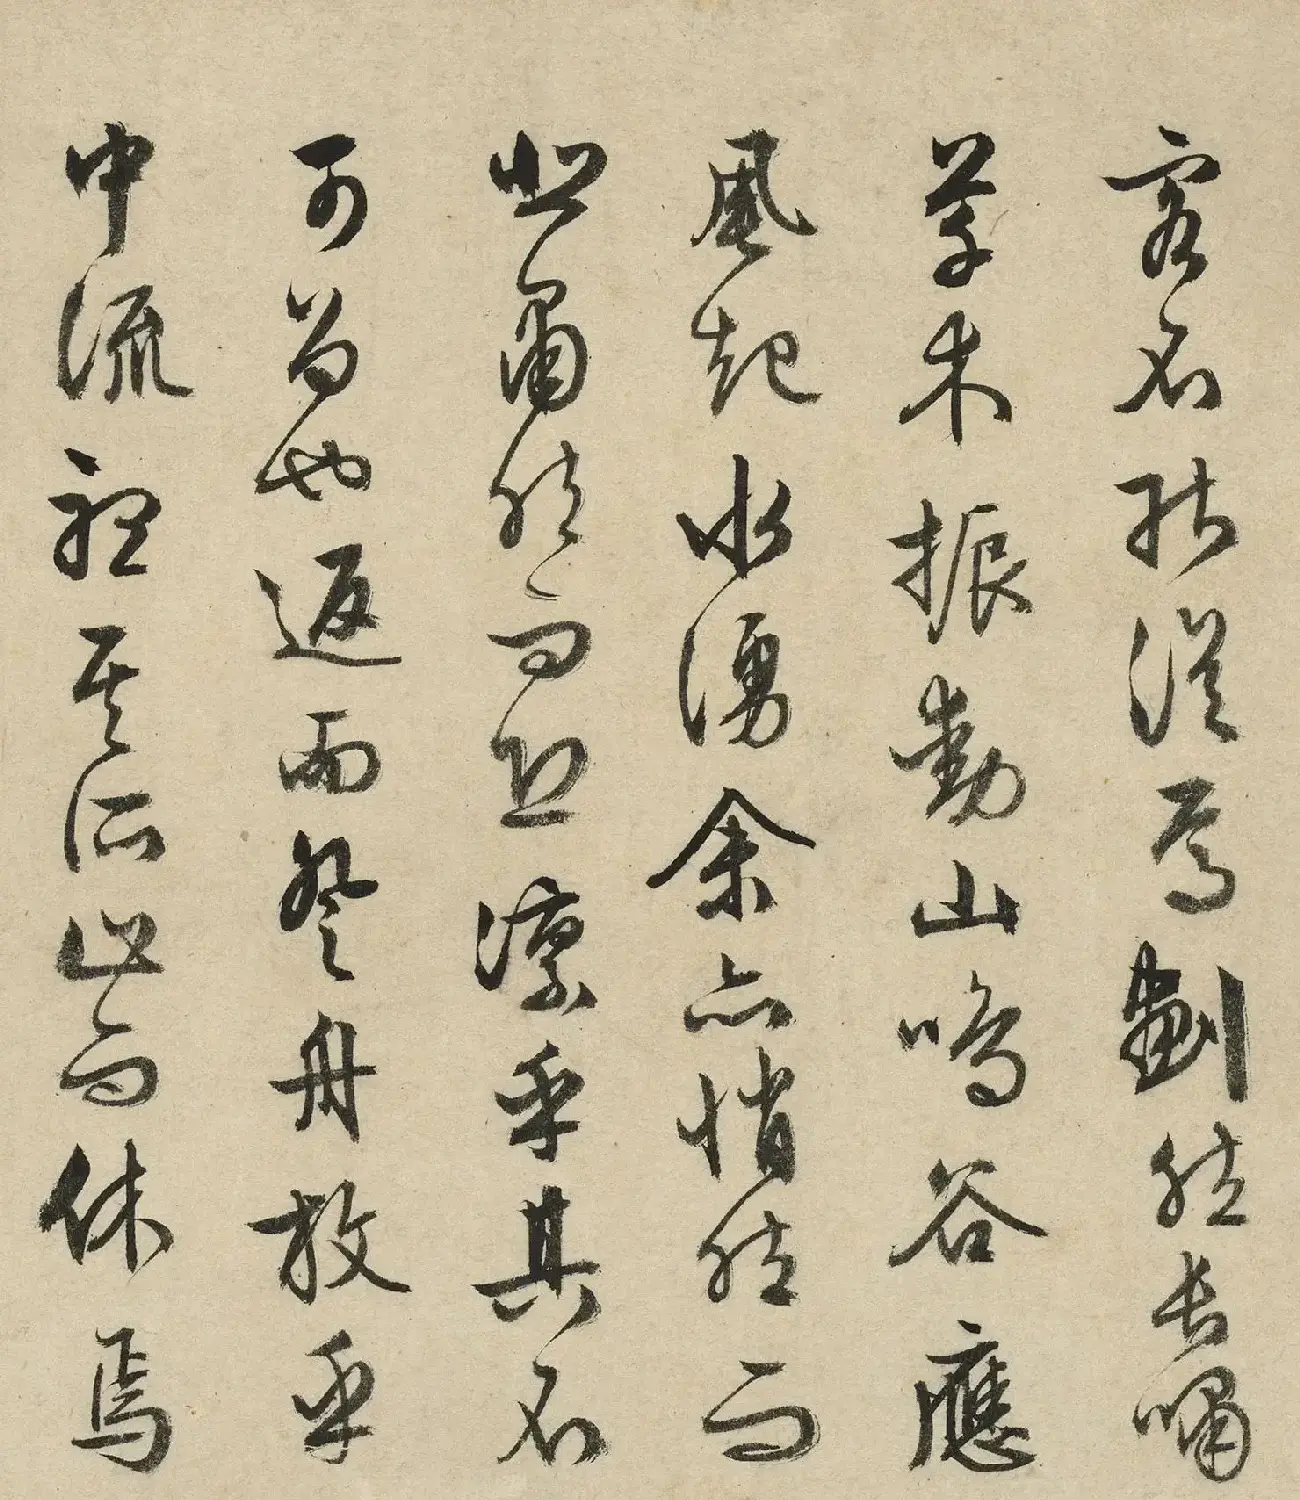 客不能從焉劃然長嘯
草木振動山鳴谷應
風起水湧余亦悄然而
悲肅然而恐凜乎其不
可留也返而登舟放乎
中流聽其所止而休焉